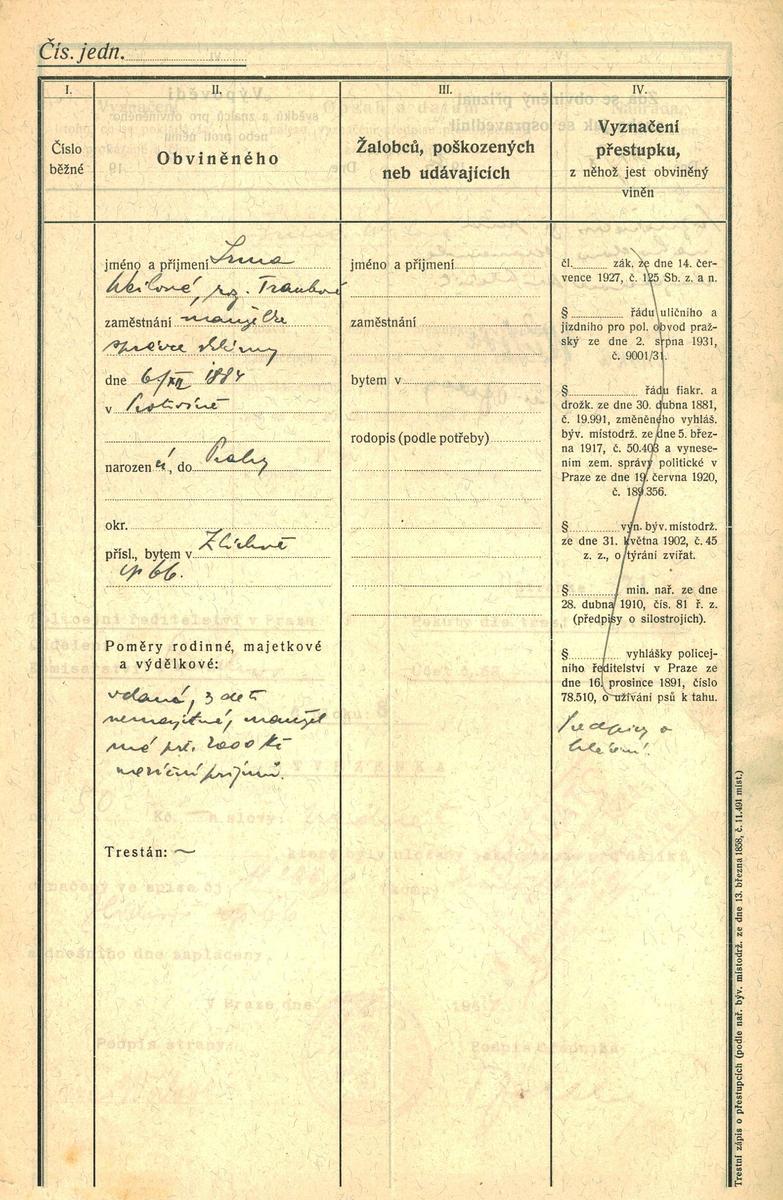 Čís. jedn.
I.
II.
III.
IV.
Číslo
běžné
Obviněného
Žalobců, poškozených
neb udávajících
Vyznačení
přestupku,
z něhož jest obviněný
viněn
jméno a příjmení Irma
Weilová, roz. Traubová
zaměstnání manželka
správce
dne 6/XII 1884
v
narozen á, do Prahy
okr.
přísl., bytem v Zlichově
čp 66.
Poměry rodinné, majetkové
a výdělkové:
vdaná, 3 děti
nemajetná, manžel
má prý. 2000 Kč
měsíční příjmů.
Trestán: —
jméno a příjmení
zaměstnání
bytem v
rodopis (podle potřeby)
čl. zák. ze dne 14. čer-
vence 1927, č. 125 Sb. z. a n.
§ řádu uličního a
jízdního pro pol. obvod praž-
ský ze dne 2. srpna 1931,
č. 9001/31.
§ řádu fiakr. a
drožk. ze dne 30. dubna 1881,
č. 19.991, změněného vyhláš.
býv. místodrž. ze dne 5. břez-
na 1917, č. 50.403 a vynese-
ním zem. správy politické v
Praze ze dne 19. června 1920,
č. 189.356.
§ vyn. býv. místodrž.
ze dne 31. května 1902, č. 45
z. z., o týrání zvířat.
§ min. nař. ze dne
28. dubna 1910, čís. 81 ř. z.
(předpisy o silostrojích).
§ vyhlášky policej-
ního ředitelství v Praze ze
dne 16. prosince 1891, číslo
78.510, o užívání psů k tahu.
Předpisy o
hlášení.
Trestní zápis o přestupcích (podle nař. býv. místodrž. ze dne 13. března 1858, č. 11.491 míst.)